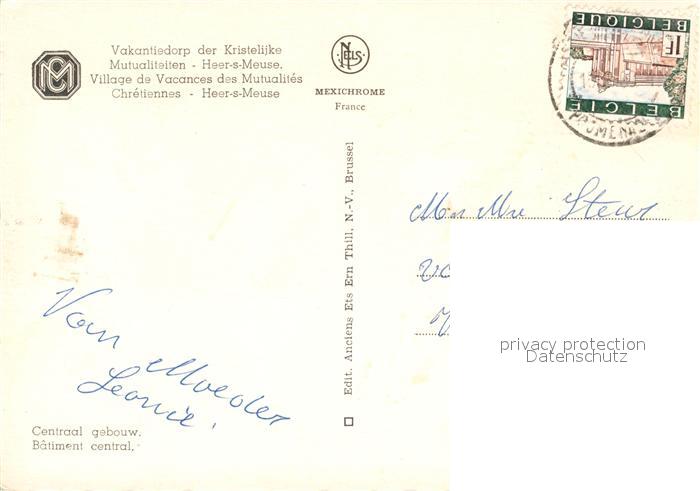 Vakantiedorp der Kristelijke
Mutualiteiten - Heer-s-Meuse.
Village de Vacances des Mutualités
Chrétiennes - Heer-s-Meuse
NELS
MEXICHROME
France
BELGIQUE
1F
BELGIË
Edit. Anciens Ets Ern Thill, N.-V., Brussel
Mr Mme
privacy protection
Datenschutz
Van Moeder
Leonie.
Centraal gebouw.
Bâtiment central.